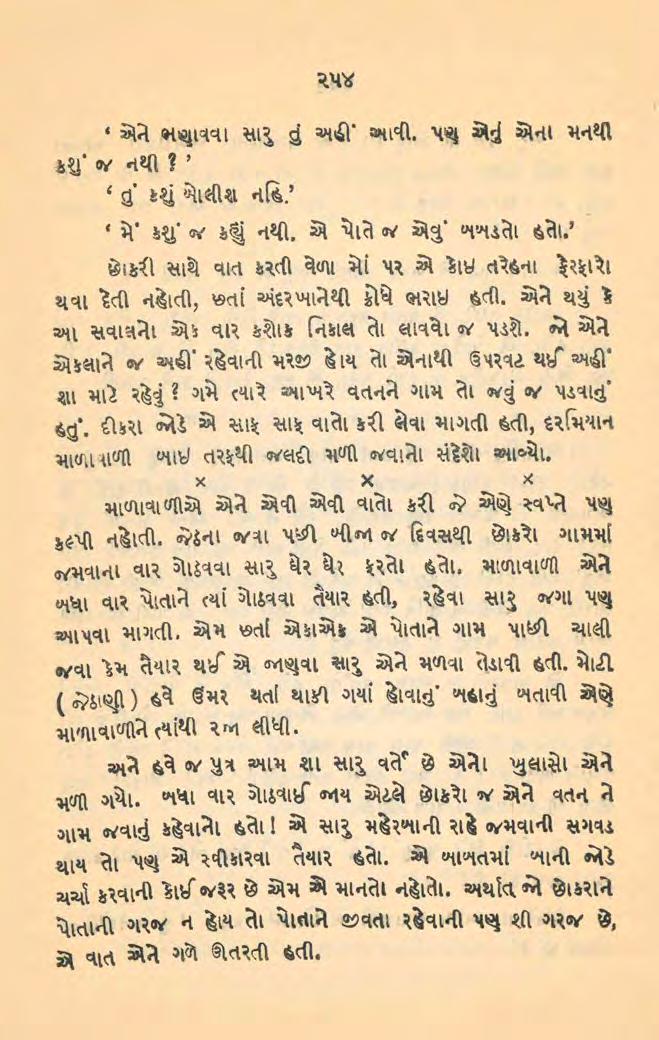 ૨૫૪
‘ એને ભણાવવા સારુ તું અહીં આવી. પણ એનું એના મનથી
કશું જ નથી ? ’
‘ તું કશું બોલીશ નહિ.’
‘ મેં કશું જ કહ્યું નથી. એ પોતે જ એવું બબડતો હતો.’
છોકરી સાથે વાત કરતી વેળા મોં પર એ કોઇ તરેહના ફેરફારો
થવા દેતી નહોતી, છતાં અંદરખાનેથી ક્રોધે ભરાઇ હતી. એને થયું કે
આ સવાલનો એક વાર કશોક નિકાલ તો લાવવો જ પડશે. જો એને
એકલાને જ અહીં રહેવાની મરજી હોય તો એનાથી ઉપરવટ થઈ અહીં
શા માટે રહેવું ? ગમે ત્યારે આખરે વતનને ગામ તો જવું જ પડવાનું
હતું. દીકરા જોડે એ સાફ સાફ વાતો કરી લેવા માગતી હતી, દરમિયાન
માળાવાળી બાઇ તરફથી જલદી મળી જવાનો સંદેશો આવ્યો.
× × ×
માળાવાળીએ એને એવી એવી વાતો કરી જે એણે સ્વપ્ને પણ
કલ્પી નહોતી. જેઠના જવા પછી બીજા જ દિવસથી છોકરો ગામમાં
જમવાના વાર ગોઠવવા સારુ ઘેર ઘેર ફરતો હતો. માળાવાળી એને
બધા વાર પોતાને ત્યાં ગોઠવવા તૈયાર હતી, રહેવા સારુ જગા પણ
આપવા માગતી. એમ છતાં એકાએક એ પોતાને ગામ પાછી ચાલી
જવા કેમ તૈયાર થઈ એ જાણવા સારુ એને મળવા તેડાવી હતી. મોટી
( જેઠાણી ) હવે ઉંમર થતાં થાકી ગયાં હોવાનું બહાનું બતાવી એણે
માળાવાળીને ત્યાંથી રજા લીધી.
અને હવે જ પુત્ર આમ શા સારુ વર્તે છે એનો ખુલાસો એને
મળી ગયો. બધા વાર ગોઠવાઈ જાય એટલે છોકરો જ એને વતન ને
ગામ જવાનું કહેવાનો હતો! એ સારુ મહેરબાની રાહે જમવાની સગવડ
થાય તો પણ એ સ્વીકારવા તૈયાર હતો. એ બાબતમાં બાની જોડે
ચર્ચા કરવાની કોઈ જરૂર છે એમ એ માનતો નહોતો. અર્થાત્ જો છોકરાને
પોતાની ગરજ ન હોય તો પોતાને જીવતા રહેવાની પણ શી ગરજ છે,
એ વાત એને ગળે ઊતરતી હતી.